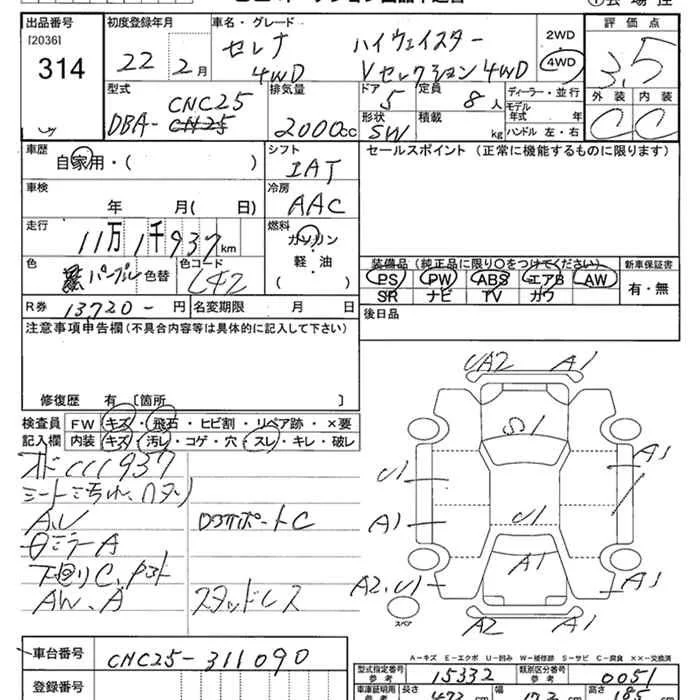 出品番号 初度登録年月 車名・グレード 評価点
[2036]
314
22年 2月
セレナ ハイウェイスター
4WD Vセレクション 4WD
2WD
4WD
3.5
型式 排気量 ドア 定員 ディーラー・並行
CNC25
DBA-CN25
2000cc
5 8人
モデル年式 年
外装 内装
形状 SW 積載 kg ハンドル 左・右
C C
車歴 シフト セールスポイント(正常に機能するものに限ります)
自家用・( ) IAT
車検 冷房
年 月( 日) AAC
走行 燃料
11万1千937km
ガソリン
軽・油
( )
色 パープル 色替 色コード L42
装備品(純正品に限り○をつけてください) 新車保証書
PS PW ABS エアB AW 有・無
SR ナビ TV カワ
R券 13720-円 名変期限 月 日
後日品
注意事項申告欄(不具合内容等は具体的に記入して下さい)
修復歴 有 [箇所 ]
検査員 FW キズ・飛石・ヒビ割・リペア跡・×要
記入欄 内装 キズ・汚れ・コゲ・穴・スレ・キレ・破レ
UA2 A1
S1
U1 A1
A1 U1
A1
A2,U1 A1
A2 A1
スペア
A,U
ロアサポートC
ミラーA
下回りC
AW、A スタッドレス
A-キズ E-エクボ U-凹み W-補修跡 S-サビ C-腐食 XX-交換済
車台番号 CNC25-311090
型式指定番号 参考 15332 類別区分番号 参考 0051
登録番号
車庫証明用 参考 長さ 幅 高さ 185